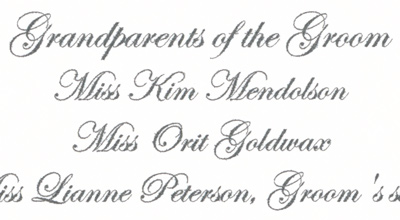 Grandparents of the Groom
Miss Kim Mendolson
Miss Orit Goldwax
Lianne Peterson, Groom's